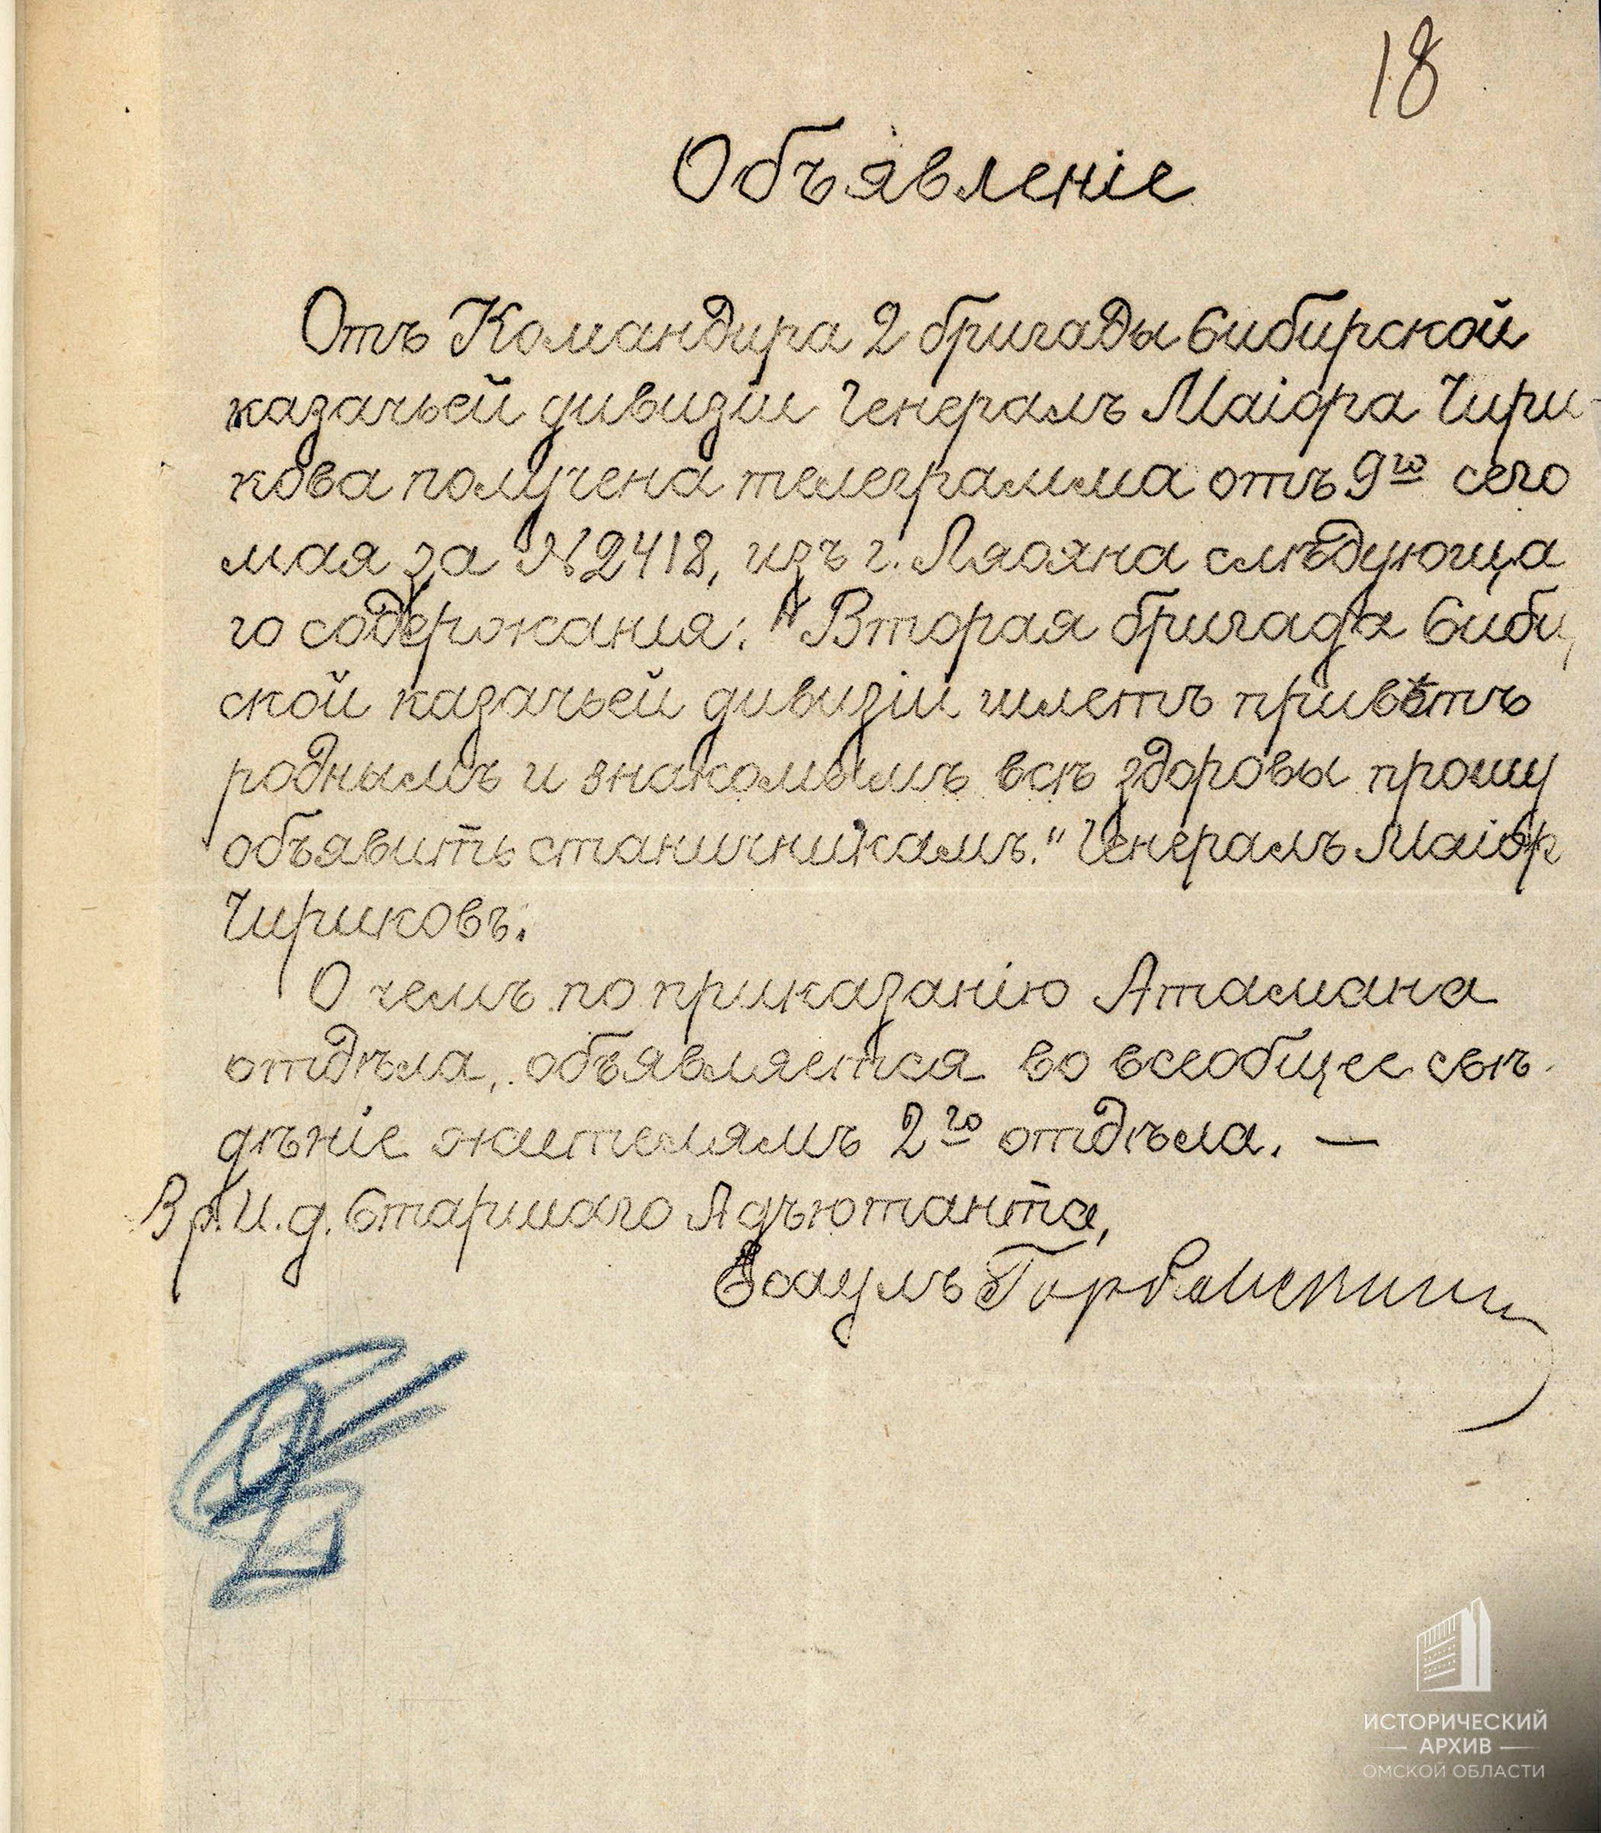 18
Объявленіе
Отъ Командира 2 бригады Сибирской
казачьей дивизіи Генералъ Маіора Чири-
кова получена телеграмма отъ 9го сего
мая за №2418, изъ г. Ляояна слѣдующа
го содержанія: "Вторая бригада Сиби
ской казачьей дивизіи шлетъ привѣтъ
роднымъ и знакомымъ всѣ здоровы прошу
объявить станичникамъ." Генералъ Маіор
Чириковъ.
О чемъ по приказанію Атамана
отдѣла, объявляется во всеобщее свѣ-
дѣніе жителямъ 2го отдѣла. —
Вр. И. д. Старшаго Адъютанта,
Есаулъ
ИСТОРИЧЕСКИЙ
АРХИВ
ОМСКОЙ ОБЛАСТИ